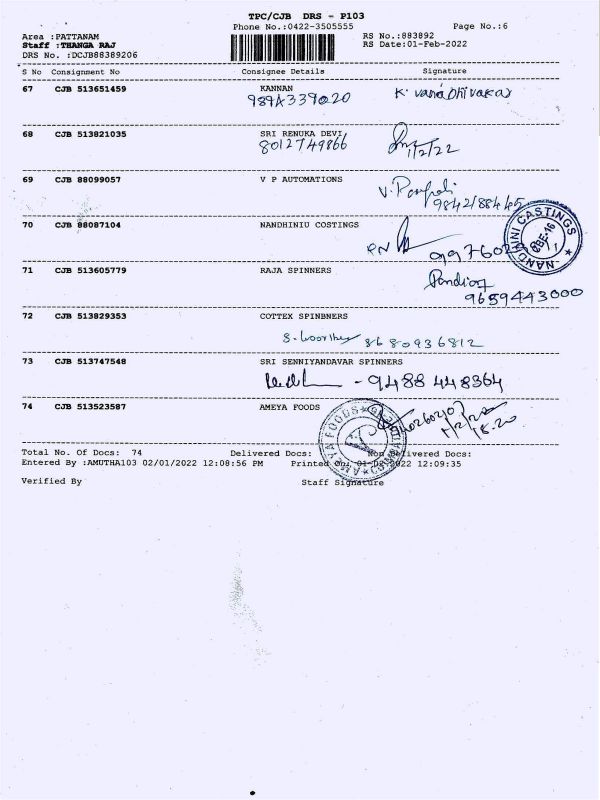 TPC/CJB DRS - P103
Phone No.:0422-3505555 Page No.:6
Area :PATTANAM RS No.:883892
Staff :THANGA RAJ RS Date:01-Feb-2022
DRS No. :DCJB88389206
S No Consignment No Consignee Details Signature
67 CJB 513651459 KANNAN
68 CJB 513821035 SRI RENUKA DEVI
8012749866 1/2/22
69 CJB 88099057 V P AUTOMATIONS
70 CJB 88087104 NANDHINIU COSTINGS
NANDHINI CASTINGS
71 CJB 513605779 RAJA SPINNERS
9659443000
72 CJB 513829353 COTTEX SPINBNERS
8680936812
73 CJB 513747548 SRI SENNIYANDAVAR SPINNERS
- 9488448364
74 CJB 513523587 AMEYA FOODS
AMEYA FOODS
Total No. Of Docs: 74 Delivered Docs: Non Delivered Docs:
Entered By :AMUTHA103 02/01/2022 12:08:56 PM Printed On: 01-02-2022 12:09:35
Verified By Staff Signature